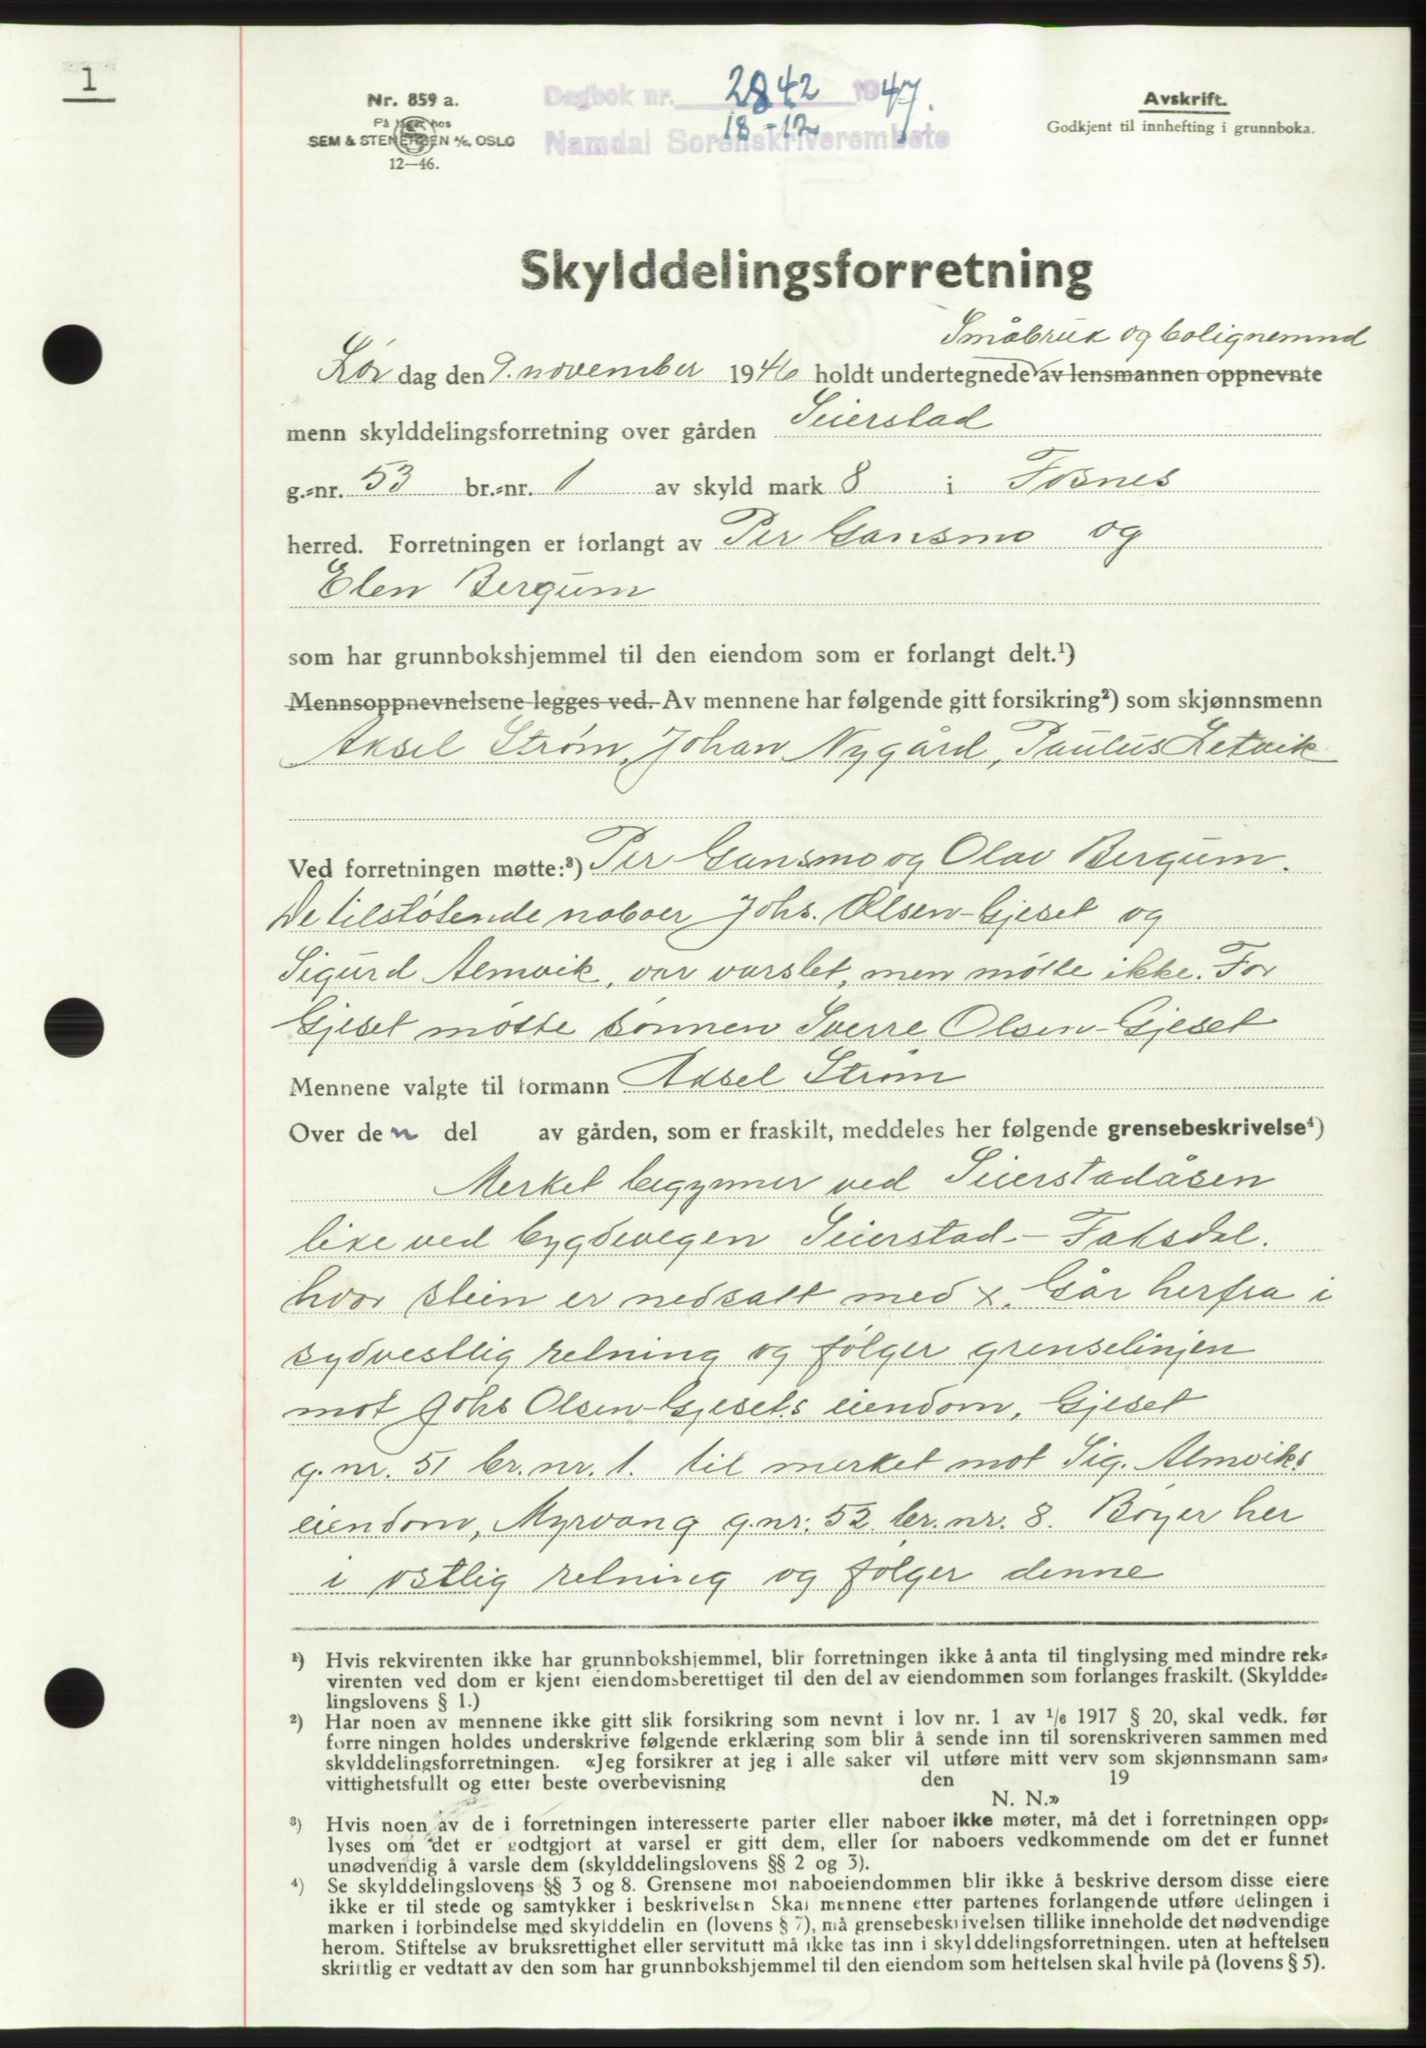 1
Nr. 859 a.
På lager hos
SEM & STENERSEN A/S, OSLO
12—46.
Dagbok nr. 2842 1947.
18-12
Namdal Sorenskriverembete
Avskrift.
Godkjent til innhefting i grunnboka.
Skylddelingsforretning
Småbruk og bolignemnd
Lør dag den 9. november 1946 holdt undertegnede av lensmannen oppnevnte
menn skylddelingsforretning over gården Seierstad
g.=nr. 53 br.=nr. 1 av skyld mark 8 i Fosnes
herred. Forretningen er forlangt av Per Gansmo og
Elen Bergum
som har grunnbokshjemmel til den eiendom som er forlangt delt.¹)
Mennsoppnevnelsene legges ved. Av mennene har følgende gitt forsikring²) som skjønnsmenn
Aksel Strøm, Johan Nygård, Paulus Letvik
Ved forretningen møtte:³) Per Gansmo og Olav Bergum.
De tilstøtende naboer Johs. Olsen-Gjeset og
Sigurd Almvik, var varslet, men møtte ikke. For
Gjeset møtte sønnen Sverre Olsen-Gjeset
Mennene valgte til formann Aksel Strøm
Over den del av gården, som er fraskilt, meddeles her følgende grensebeskrivelse⁴)
Merket begynner ved Seierstadåsen
like ved bygdevegen Seierstad - Faksdal.
hvor stein er nedsatt med x. Går herfra i
sydvestlig retning og følger grenselinjen
mot Johs Olsen-Gjesets eiendom, Gjeset
g.nr. 51 br.nr. 1. til merket mot Sig. Almviks
eiendom, Myrvang g.nr. 52 br.nr. 8. Bøyer her
i østlig retning og følger denne
¹) Hvis rekvirenten ikke har grunnbokshjemmel, blir forretningen ikke å anta til tinglysing med mindre rek=
virenten ved dom er kjent eiendomsberettiget til den del av eiendommen som forlanges fraskilt. (Skyldde=
lingslovens § 1.)
²) Har noen av mennene ikke gitt slik forsikring som nevnt i lov nr. 1 av 1/6 1917 § 20, skal vedk. før
forre ningen holdes underskrive følgende erklæring som blir å sende inn til sorenskriveren sammen med
skylddelingsforretningen. «Jeg forsikrer at jeg i alle saker vil utføre mitt verv som skjønnsmann sam=
vittighetsfullt og etter beste overbevisning den 19
N. N.»
³) Hvis noen av de i forretningen interesserte parter eller naboer ikke møter, må det i forretningen opp=
lyses om det er godtgjort at varsel er gitt dem, eller for naboers vedkommende om det er funnet
unødvendig å varsle dem (skylddelingslovens §§ 2 og 3).
⁴) Se skylddelingslovens §§ 3 og 8. Grensene mot naboeiendommen blir ikke å beskrive dersom disse eiere
ikke er til stede og samtykker i beskrivelsen Skal mennene etter partenes forlangende utføre delingen i
marken i forbindelse med skylddelin en (lovens § 7), må grensebeskrivelsen tillike inneholde det nødvendige
herom. Stiftelse av bruksrettighet eller servitutt må ikke tas inn i skylddelingsforretningen. uten at heftelsen
skriftlig er vedtatt av den som har grunnbokshjemmel til den eiendom som heftelsen skal hvile på (lovens § 5).